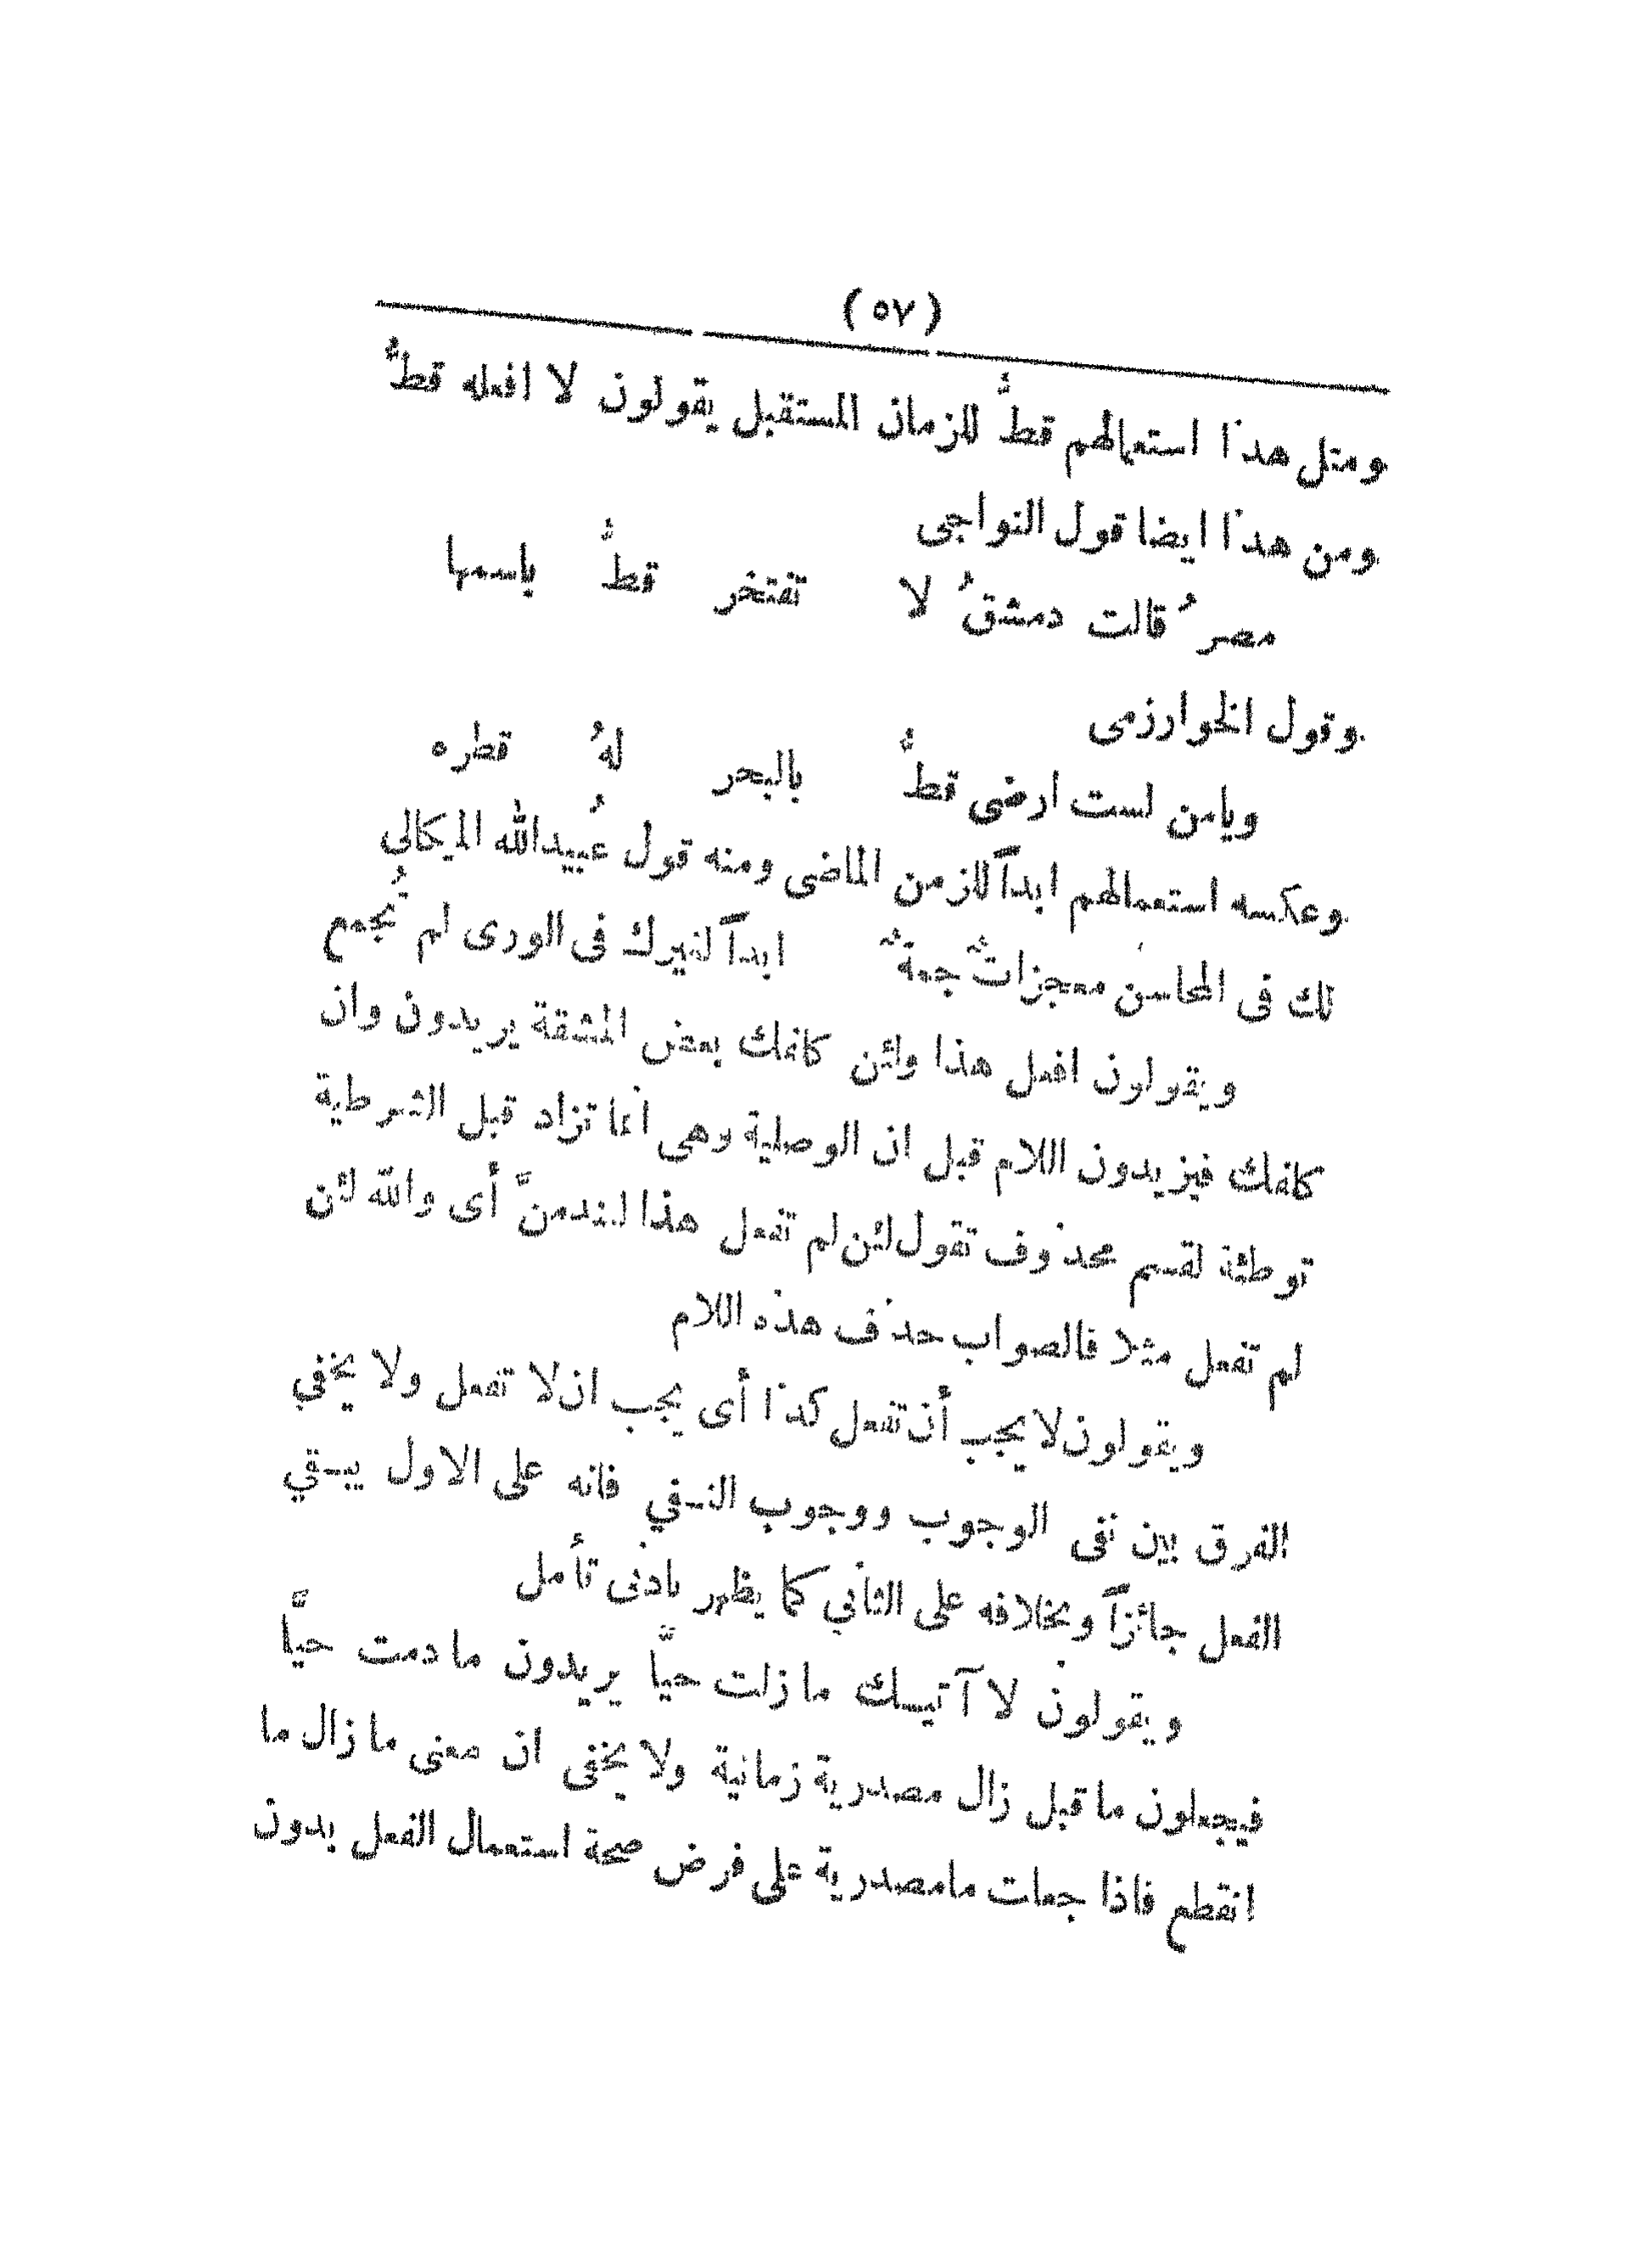 (٥٧)
ومثل هذا استعمالهم قطُّ للزمان المستقبل يقولون لا افعله قطُّ
ومن هذا ايضا قول النواجى
مصرُ قالت دمشقُ لا تفتخر قطُّ باسمها
وقول الخوارزمى
ويامن لست ارضى قطُّ بالبحر لهُ قطره
وعكسه استعمالهم ابداً للزمن الماضى ومنه قول عُبيدالله الميكالي
لك فى المحاسن معجزاتٌ جمةٌ ابداً لغيرك فى الورى لم تُجمع
ويقولون افعل هذا ولئن كلفك بعض المشقة يريدون وان
كلفك فيزيدون اللام قبل ان الوصلية وهى انما تزاد قبل الشرطية
توطئة لقسم محذوف تقول لئن لم تفعل هذا لتندمنَّ أى والله لئن
لم تفعل مثلا فالصواب حذف هذه اللام
ويقولون لا يجب أن تفعل كذا أى يجب ان لا تفعل ولا يخفي
الفرق بين نفى الوجوب ووجوب النـفي فانه على الاول يبـقي
الفعل جائزاً وبخلافه على الثاني كما يظهر بادنى تأمل
ويقولون لا آتيـك ما زلت حيًّا يريدون ما دمت حيًّا
فيجعلون ما قبل زال مصدرية زمانية ولا يخفى ان معنى ما زال ما
انقطع فاذا جعلت ما مصدرية على فرض صحة استعمال الفعل بدون